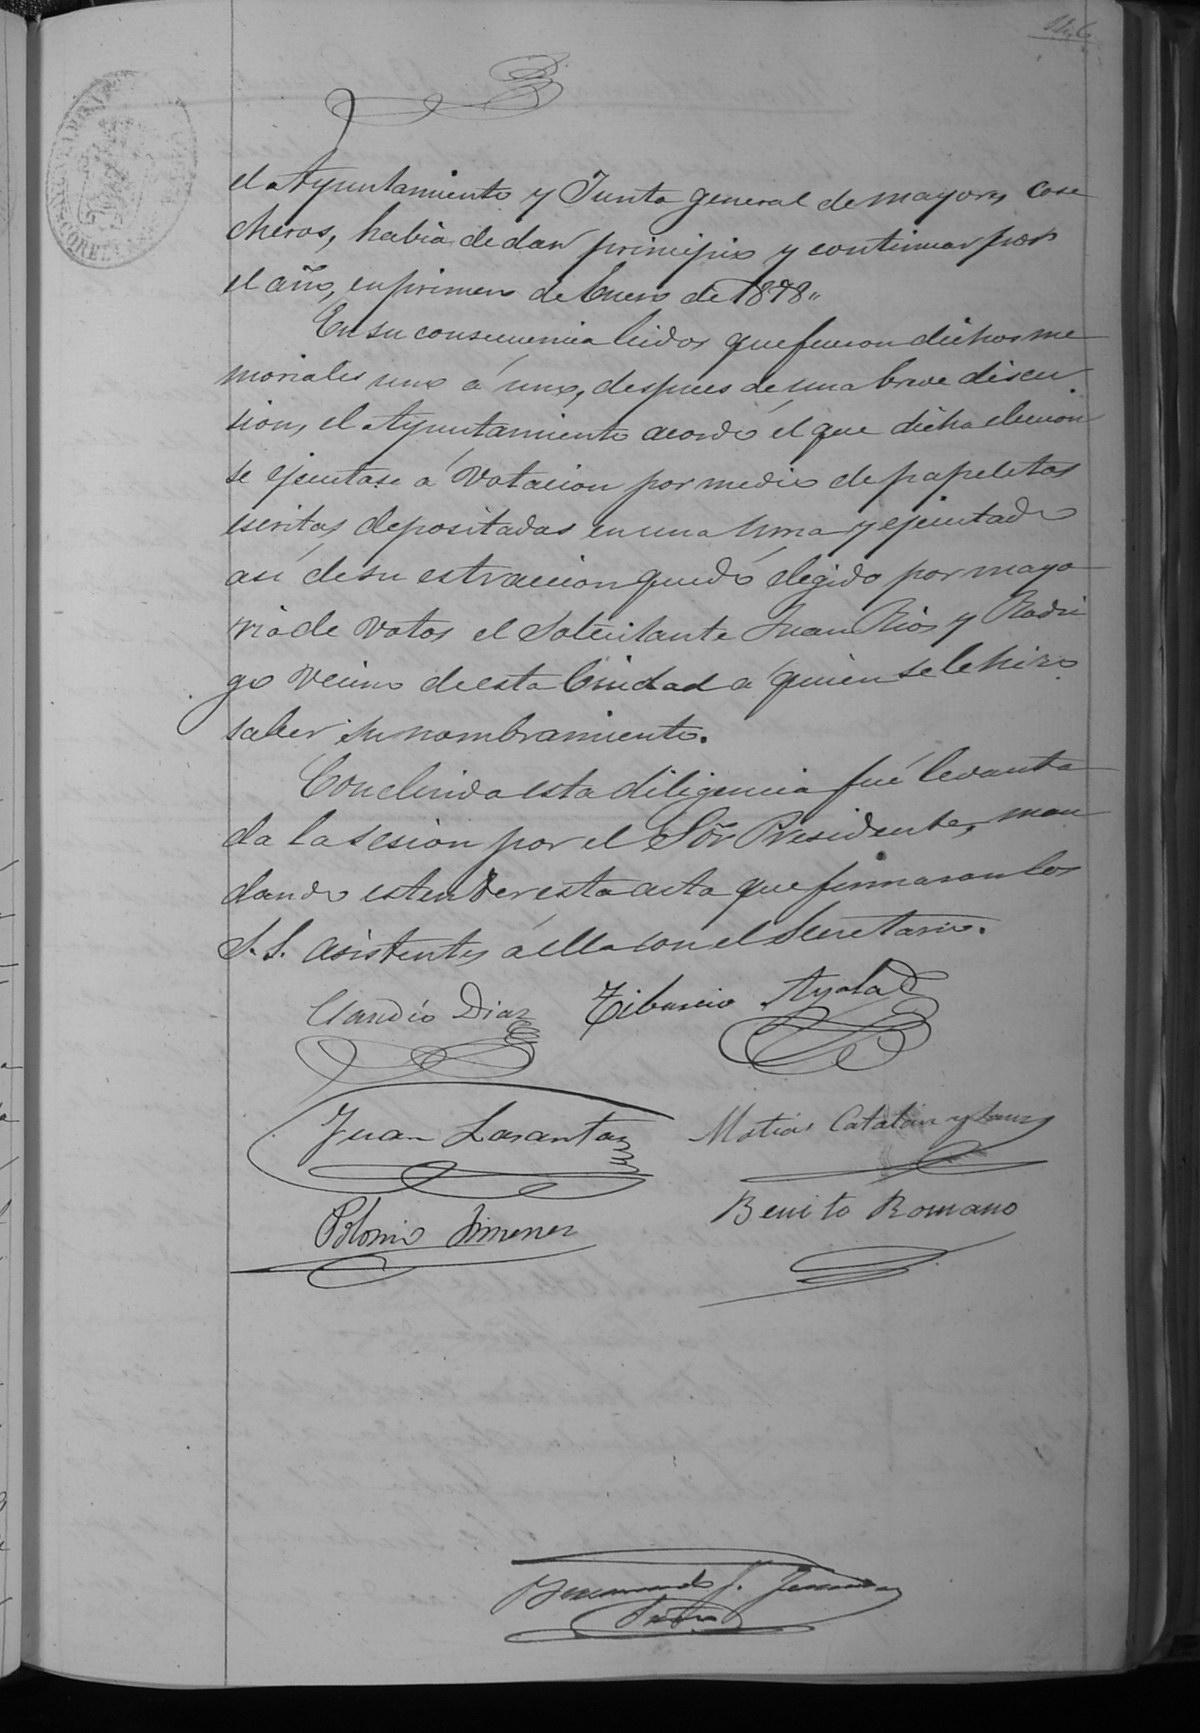 el Ayuntamiento y Junta general de mayores cose
cheros, habia de dar principio y continuar por
el año, en primero de Enero de 1878"
En su consecuencia leidos que fueron dichos me
moriales uno á uno, despues de una breve discu
sion, el Ayuntamiento acordó el que dicha eleccion
se ejecutase á votacion por medio de papeletas
escritas depositadas en una urna y ejecutado
así de su estraccion quedó elegido por mayo
ria de votos el Solicitante Juan Rios y Rodri
go vecino de esta Ciudad a quien se le hizo
saber su nombramiento.
Concluida esta diligencia fué levanta
da la sesion por el Sōr Presidente, man
dando estender esta acta que firmaron los
S.S. asistentes á ella con el Secretario.
Claudio Diaz Tiburcio Ayala
Juan Lasanta Matias Catalan y
Polonio Jimenez Benito Romano
Secr.º